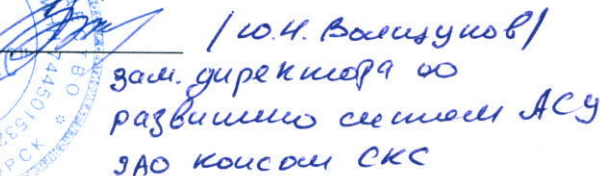 /Ю.Н. Волщуков/
зам. директора по
развитию систем АСУ
ЗАО КонсОМ СКС
7445015